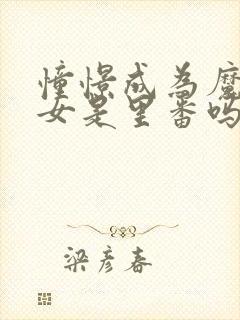 憧憬成为魔
女是里番吗
梁彦春